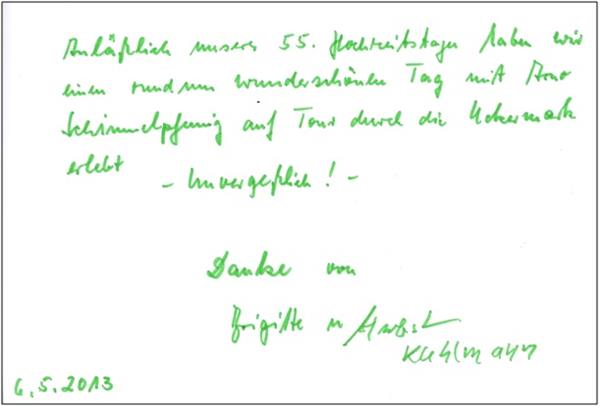 Anläßlich unseres 55. Hochzeitstages haben wir
einen rundum wunderschönen Tag mit Arno
Schimmelpfennig auf Tour durch die Uckermark
erlebt
- Unvergeßlich! -
Danke von
Brigitte u
Kuhlmann
6.5.2013